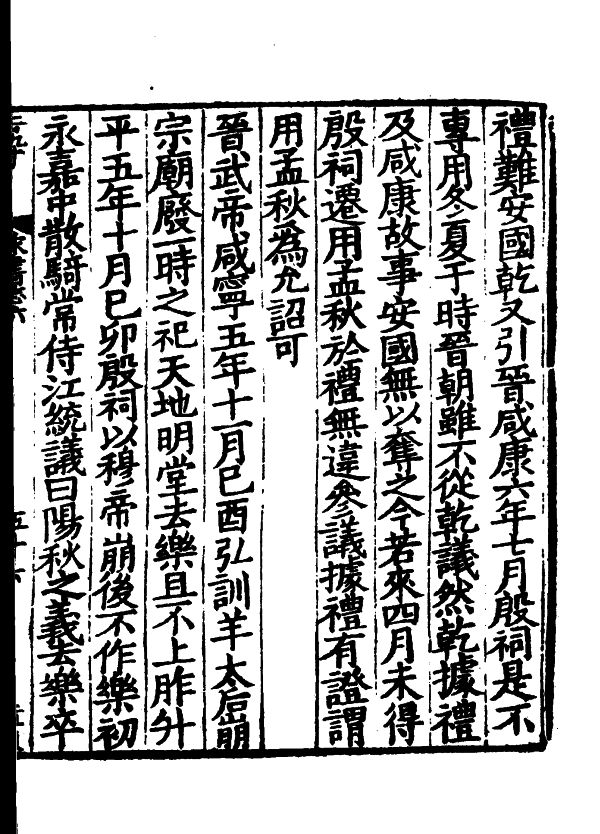 禮難安國乾又引晉咸康六年七月殷祠是不
專用冬夏于時晉朝雖不從乾議然乾據禮
及咸康故事安國無以奪之今若來四月未得
殷祠遷用孟秋於禮無違參議據禮有證謂
用孟秋爲允詔可
晉武帝咸寧五年十一月巳酉弘訓羊太后崩
宗廟廢一時之祀天地明堂去樂且不上胙升
平五年十月巳卯殷祠以穆帝崩後不作樂初
永嘉中散騎常侍江統議曰陽秋之義去樂卒